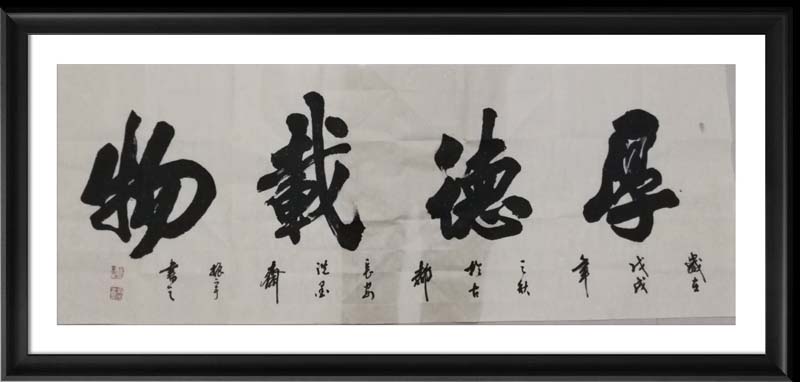 厚德載物
歲在
戊戌
年
之秋
於古
都
長安
洗墨
齋
書之